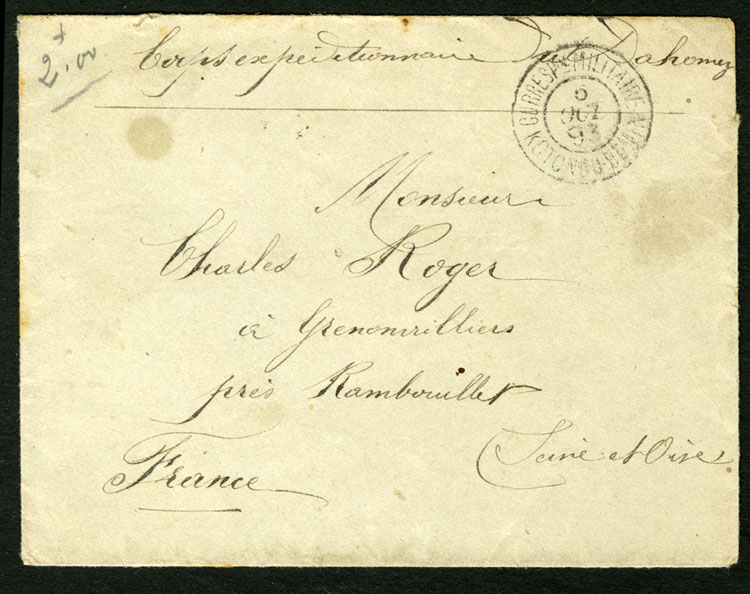 2f.00
Corps expéditionnaire Du Dahomey
CORRESP. MILITAIRE
5
OCT
93
KOTONOU-BÉNIN
Monsieur
Charles Roger
à Grenonvilliers
près Rambouillet
(Seine et Oise)
France